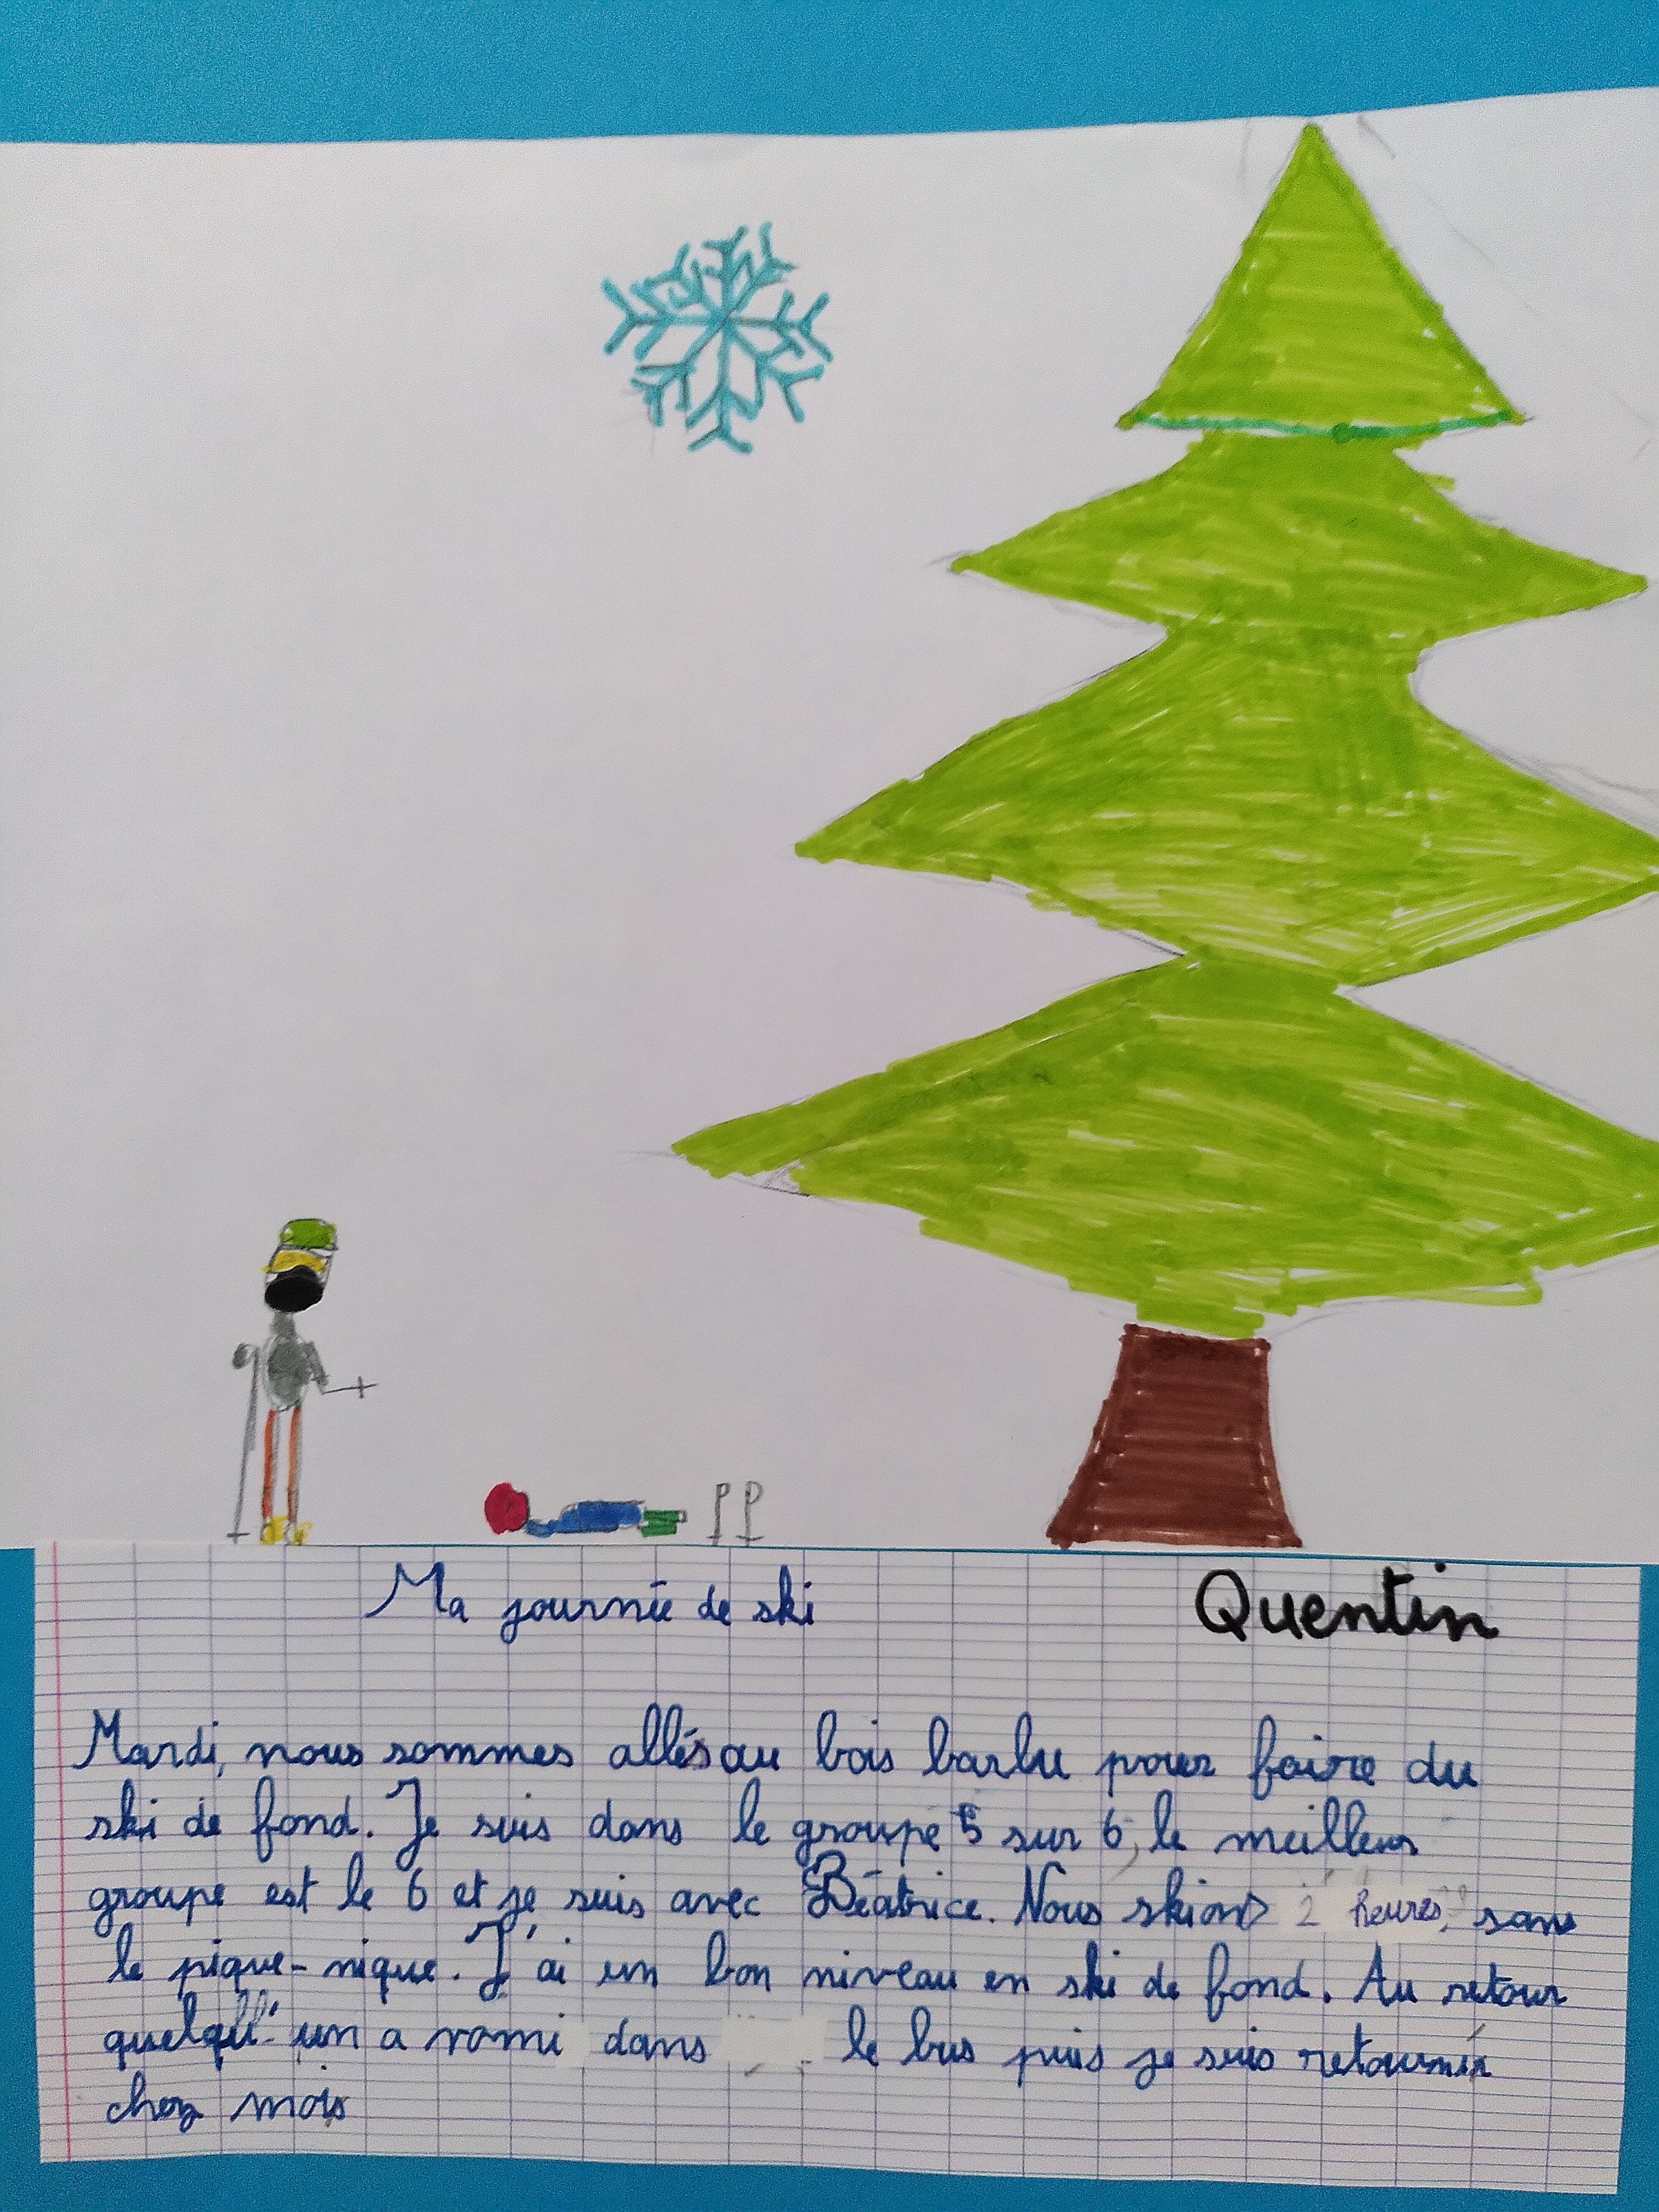 Ma journée de ski
Quentin
Mardi, nous sommes allés au bois barbu pour faire du
ski de fond. Je suis dans le groupe 5 sur 6, le meilleur
groupe est le 6 et je suis avec Béatrice. Nous skions 2 heures, sans
le pique-nique. J'ai un bon niveau en ski de fond. Au retour
quelqu'un a vomi dans le bus puis je suis retourner
chez mois